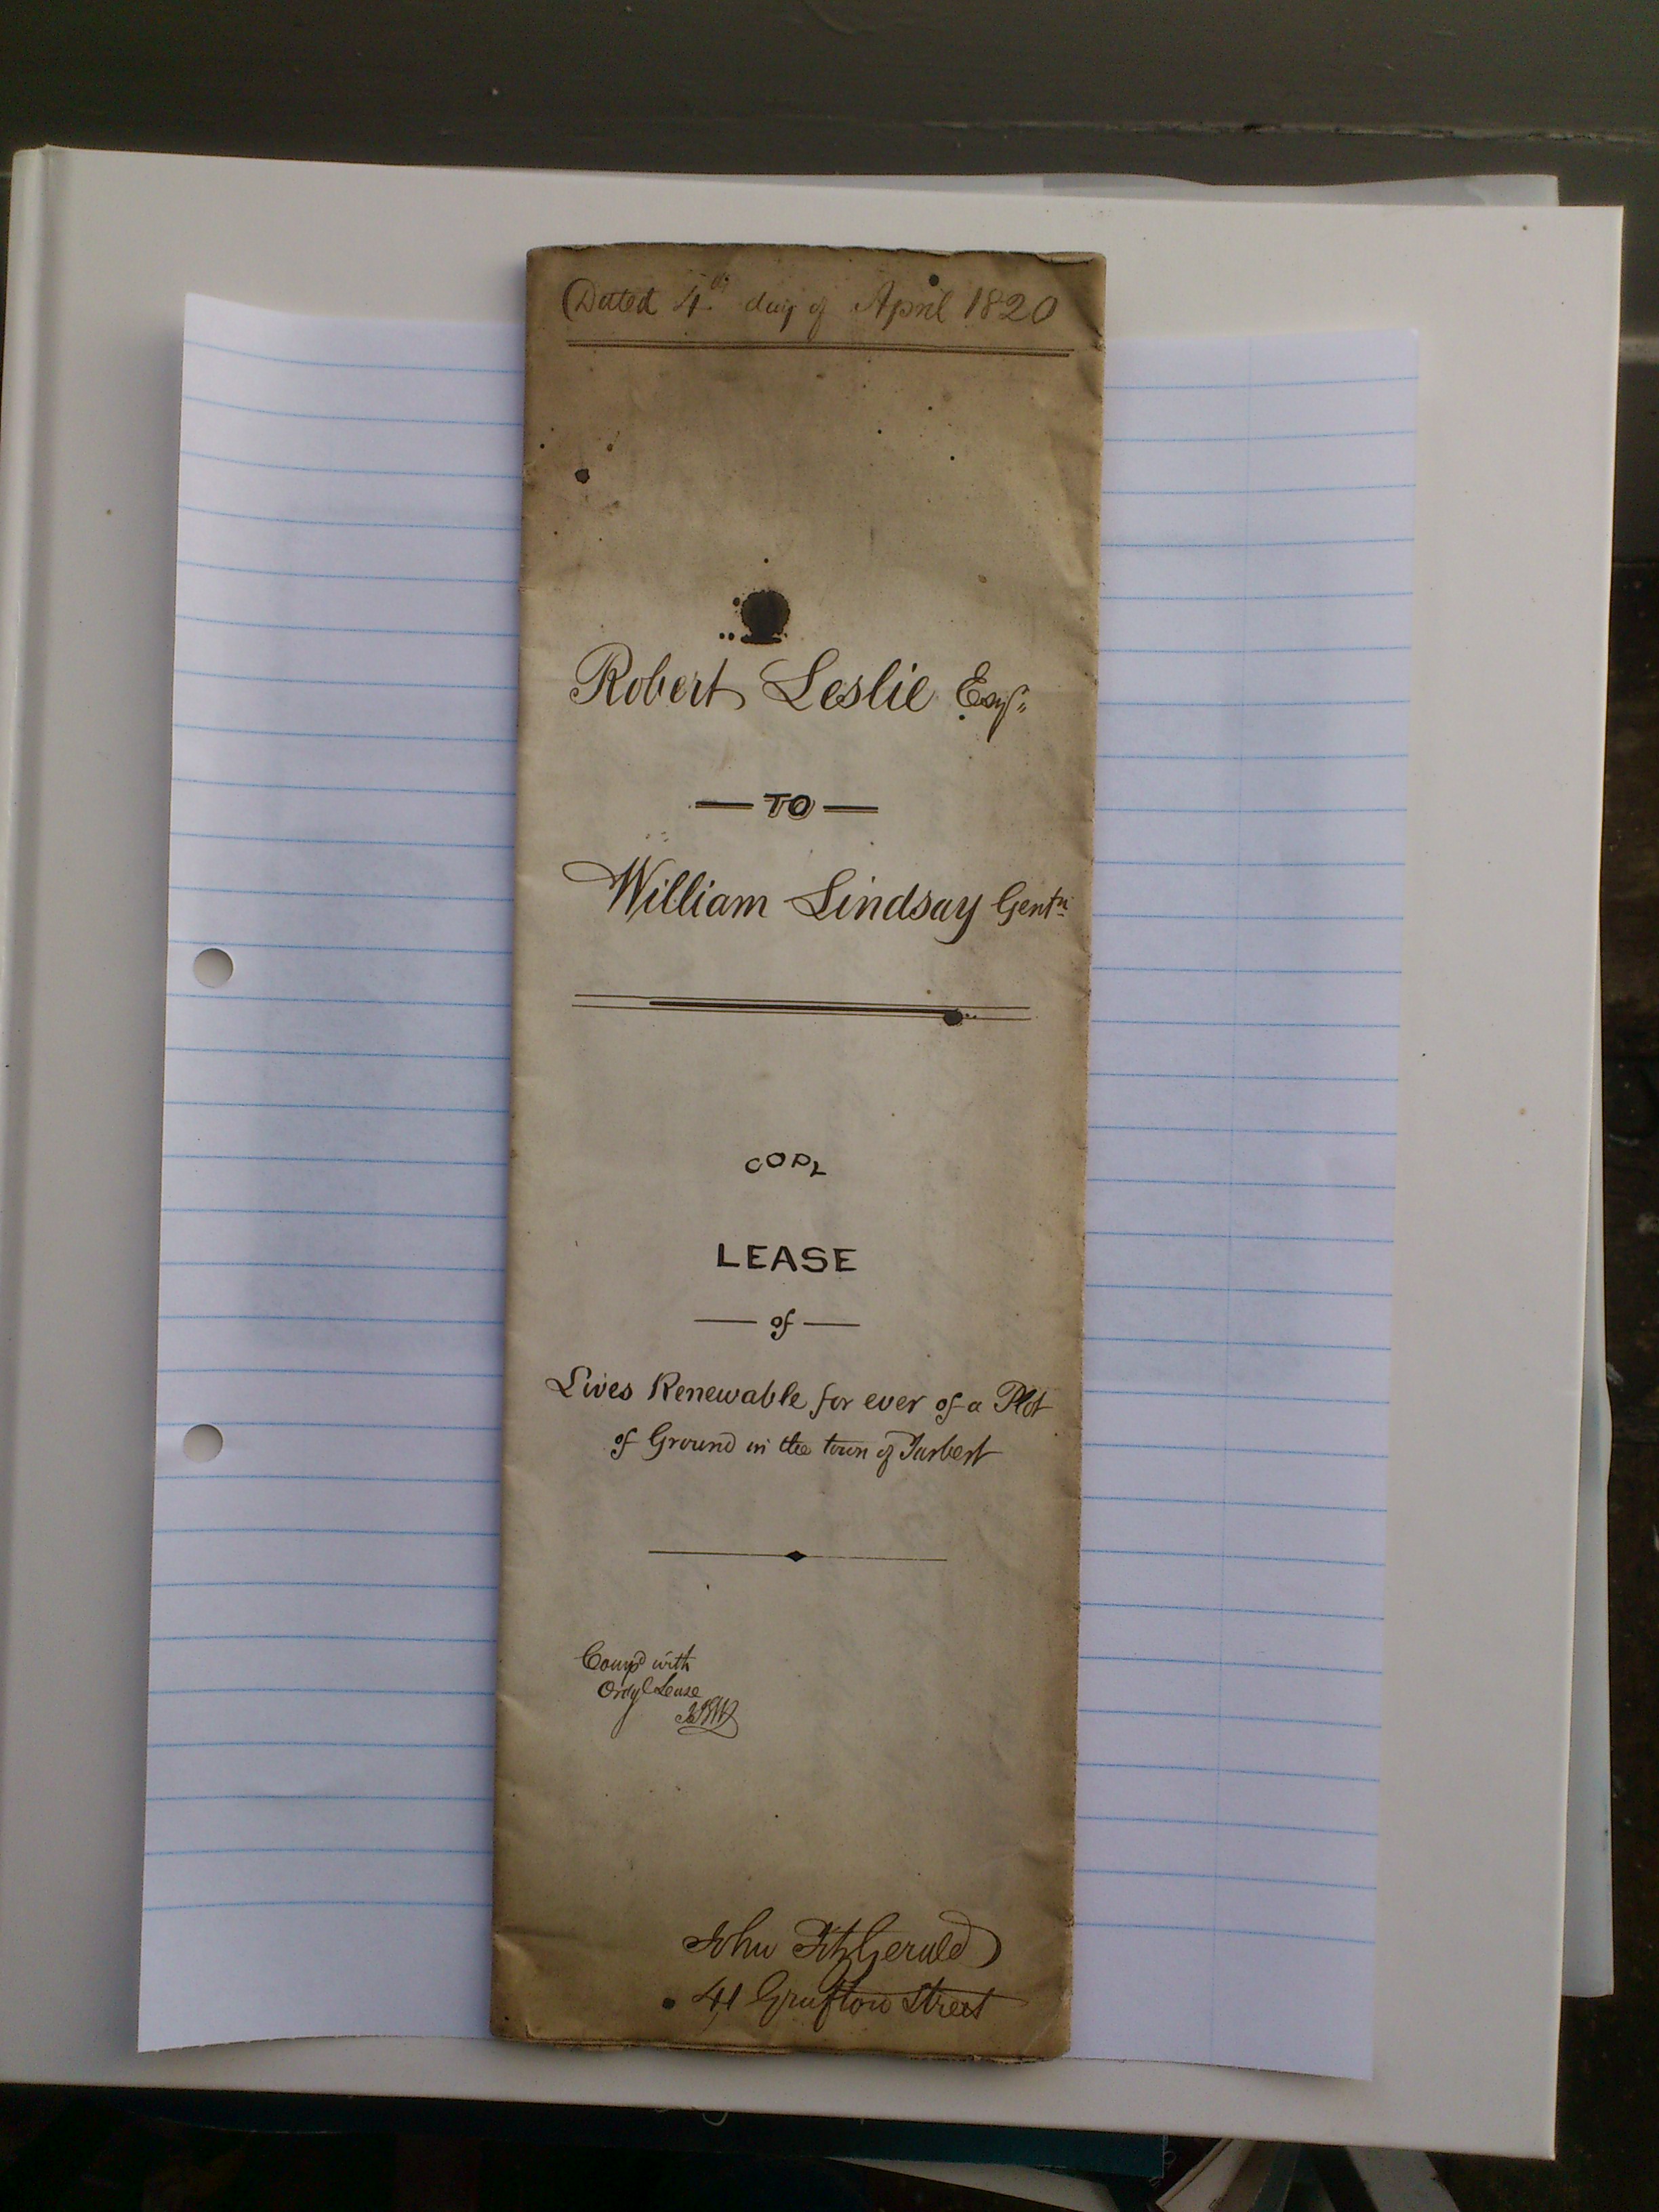 Dated 4th day of April 1820
Robert Leslie Esqr
TO
William Lindsay Gentn
COPY
LEASE
of
Lives Renewable for ever of a Plot
of Ground in the town of Tarbert
Compd with
Orig'l Lease
John FitzGerald
41 Grafton Street